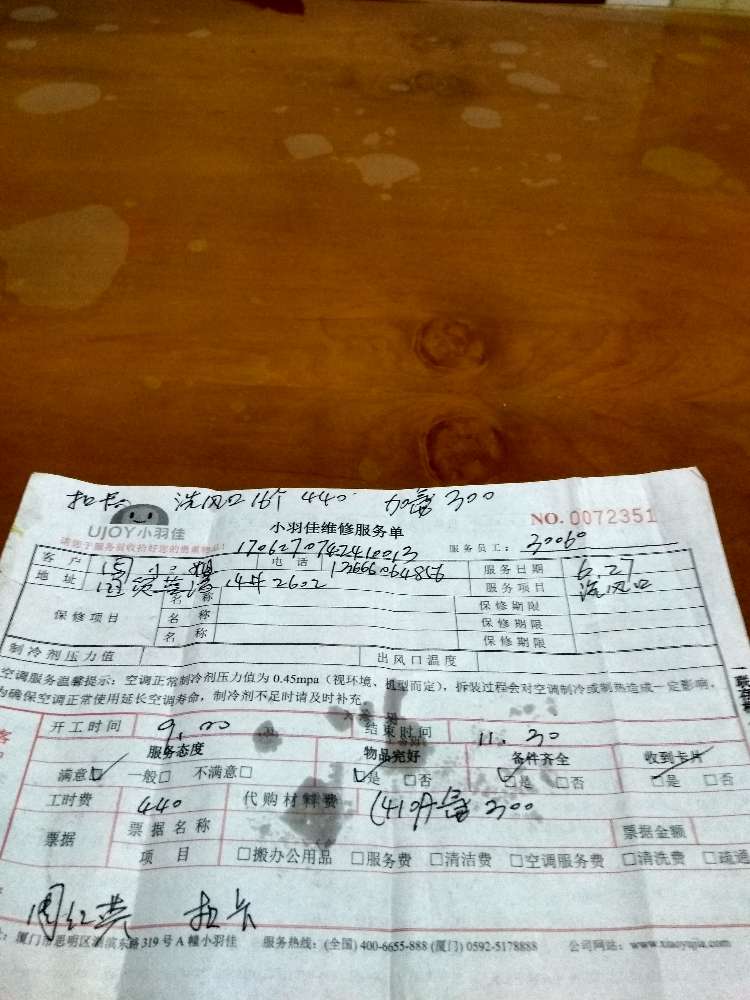 扣卡 洗风口16个 440. 加氟300
UJOY小羽佳
小羽佳维修服务单
NO. 0072351
服务员工: 30060
客户 周小姐 电话 服务日期 6.27
地址 14# 2602 服务项目 洗风口
保修项目 名称 保修期限
名称 保修期限
名称 保修期限
制冷剂压力值 出风口温度
空调服务温馨提示:空调正常制冷剂压力值为 0.45mpa(视环境、机型而定),拆装过程会对空调制冷或制热造成一定影响,
为确保空调正常使用延长空调寿命,制冷剂不足时请及时补充。
开工时间 9:00 结束时间 11:30
服务态度 物品完好 备件齐全 收到卡片
满意☑ 一般□ 不满意□ ☑是 □否 ☑是 □否 □是 □否
工时费 440 代购材料费 300
票据 票据名称 票据金额
项目 □搬办公用品 □服务费 □清洁费 □空调服务费 □清洗费 □疏通
周红英 扣卡
厦门市思明区湖滨东路 319 号 A 幢小羽佳 服务热线:(全国) 400-6655-888 (厦门) 0592-5178888 公司网站:www.xiaoyujia.com